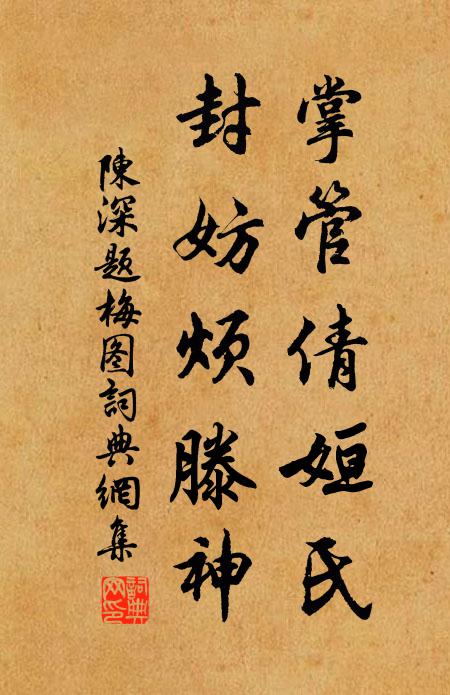 掌管倩姮氏
封妨烦滕神
陳深题梅图詞典網集
詞典网印